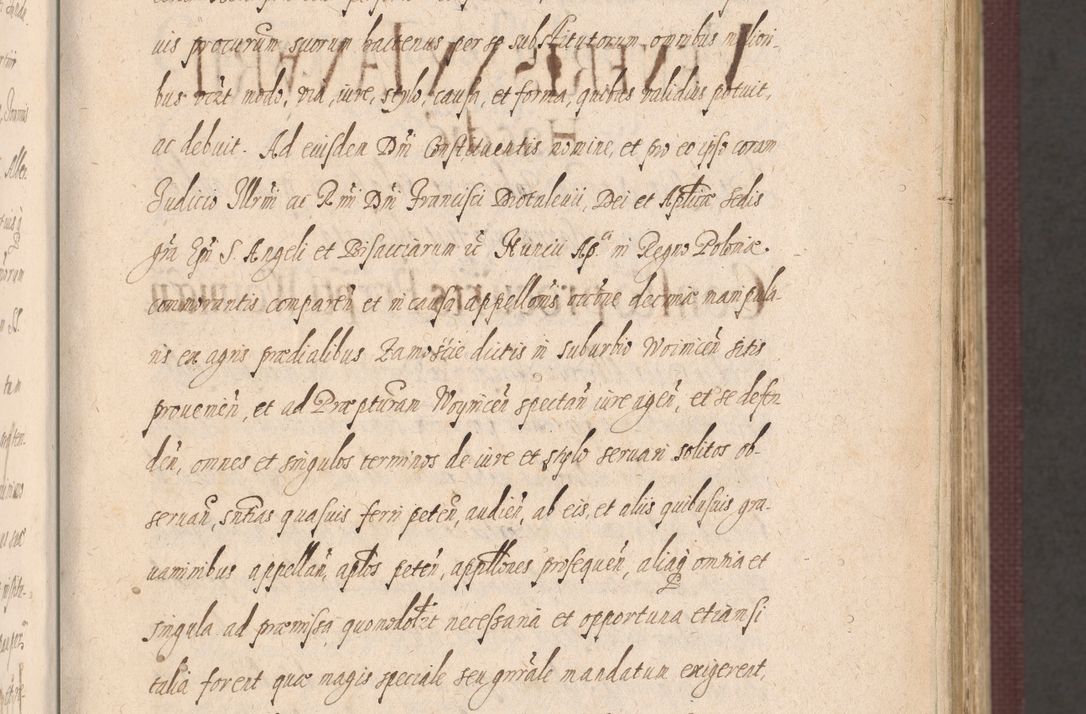 uis procurum suorum hactenus per se substitutorum omnibus melori-
bus rẽt modo, via, iure, stylo, causa, et forma, quibus validius potuit,
ac debuit. Ad euisdem Dñi Constituentis nomine, et pro eo ipso coram
Judicio Illrmi ac Rmi Dñi Francisci Diotaleuii, Dei et Aplicæ Sedis
gra Epi S. Angeli et Bisacciarum et Nuncii Ap. in Regno Poloniæ.
commorantis comparen̄ et in causa appellonis decimæ manipula-
ris ex agris prædialibus Zamoscie dictis in suburbio Woinicen̄ sitis
prouenien̄, et ad Præpturam Woynicen̄ spectan̄ iure agen̄, et se defen
den̄, omnes et singulos terminos de iure et stylo seruari solitos ob-
seruan̄, sntias quasuis ferri peten̄, audien̄, ab eis, et aliis quibusuis gra-
uaminibus appellan̄, aplos peten̄, appllones prosequen̄, aliaq omnia et
singula ad præmissa quomodolt necessaria et opportuna etiamsi
talia forent quæ magis speciale seu gnrale mandatum exigerent,